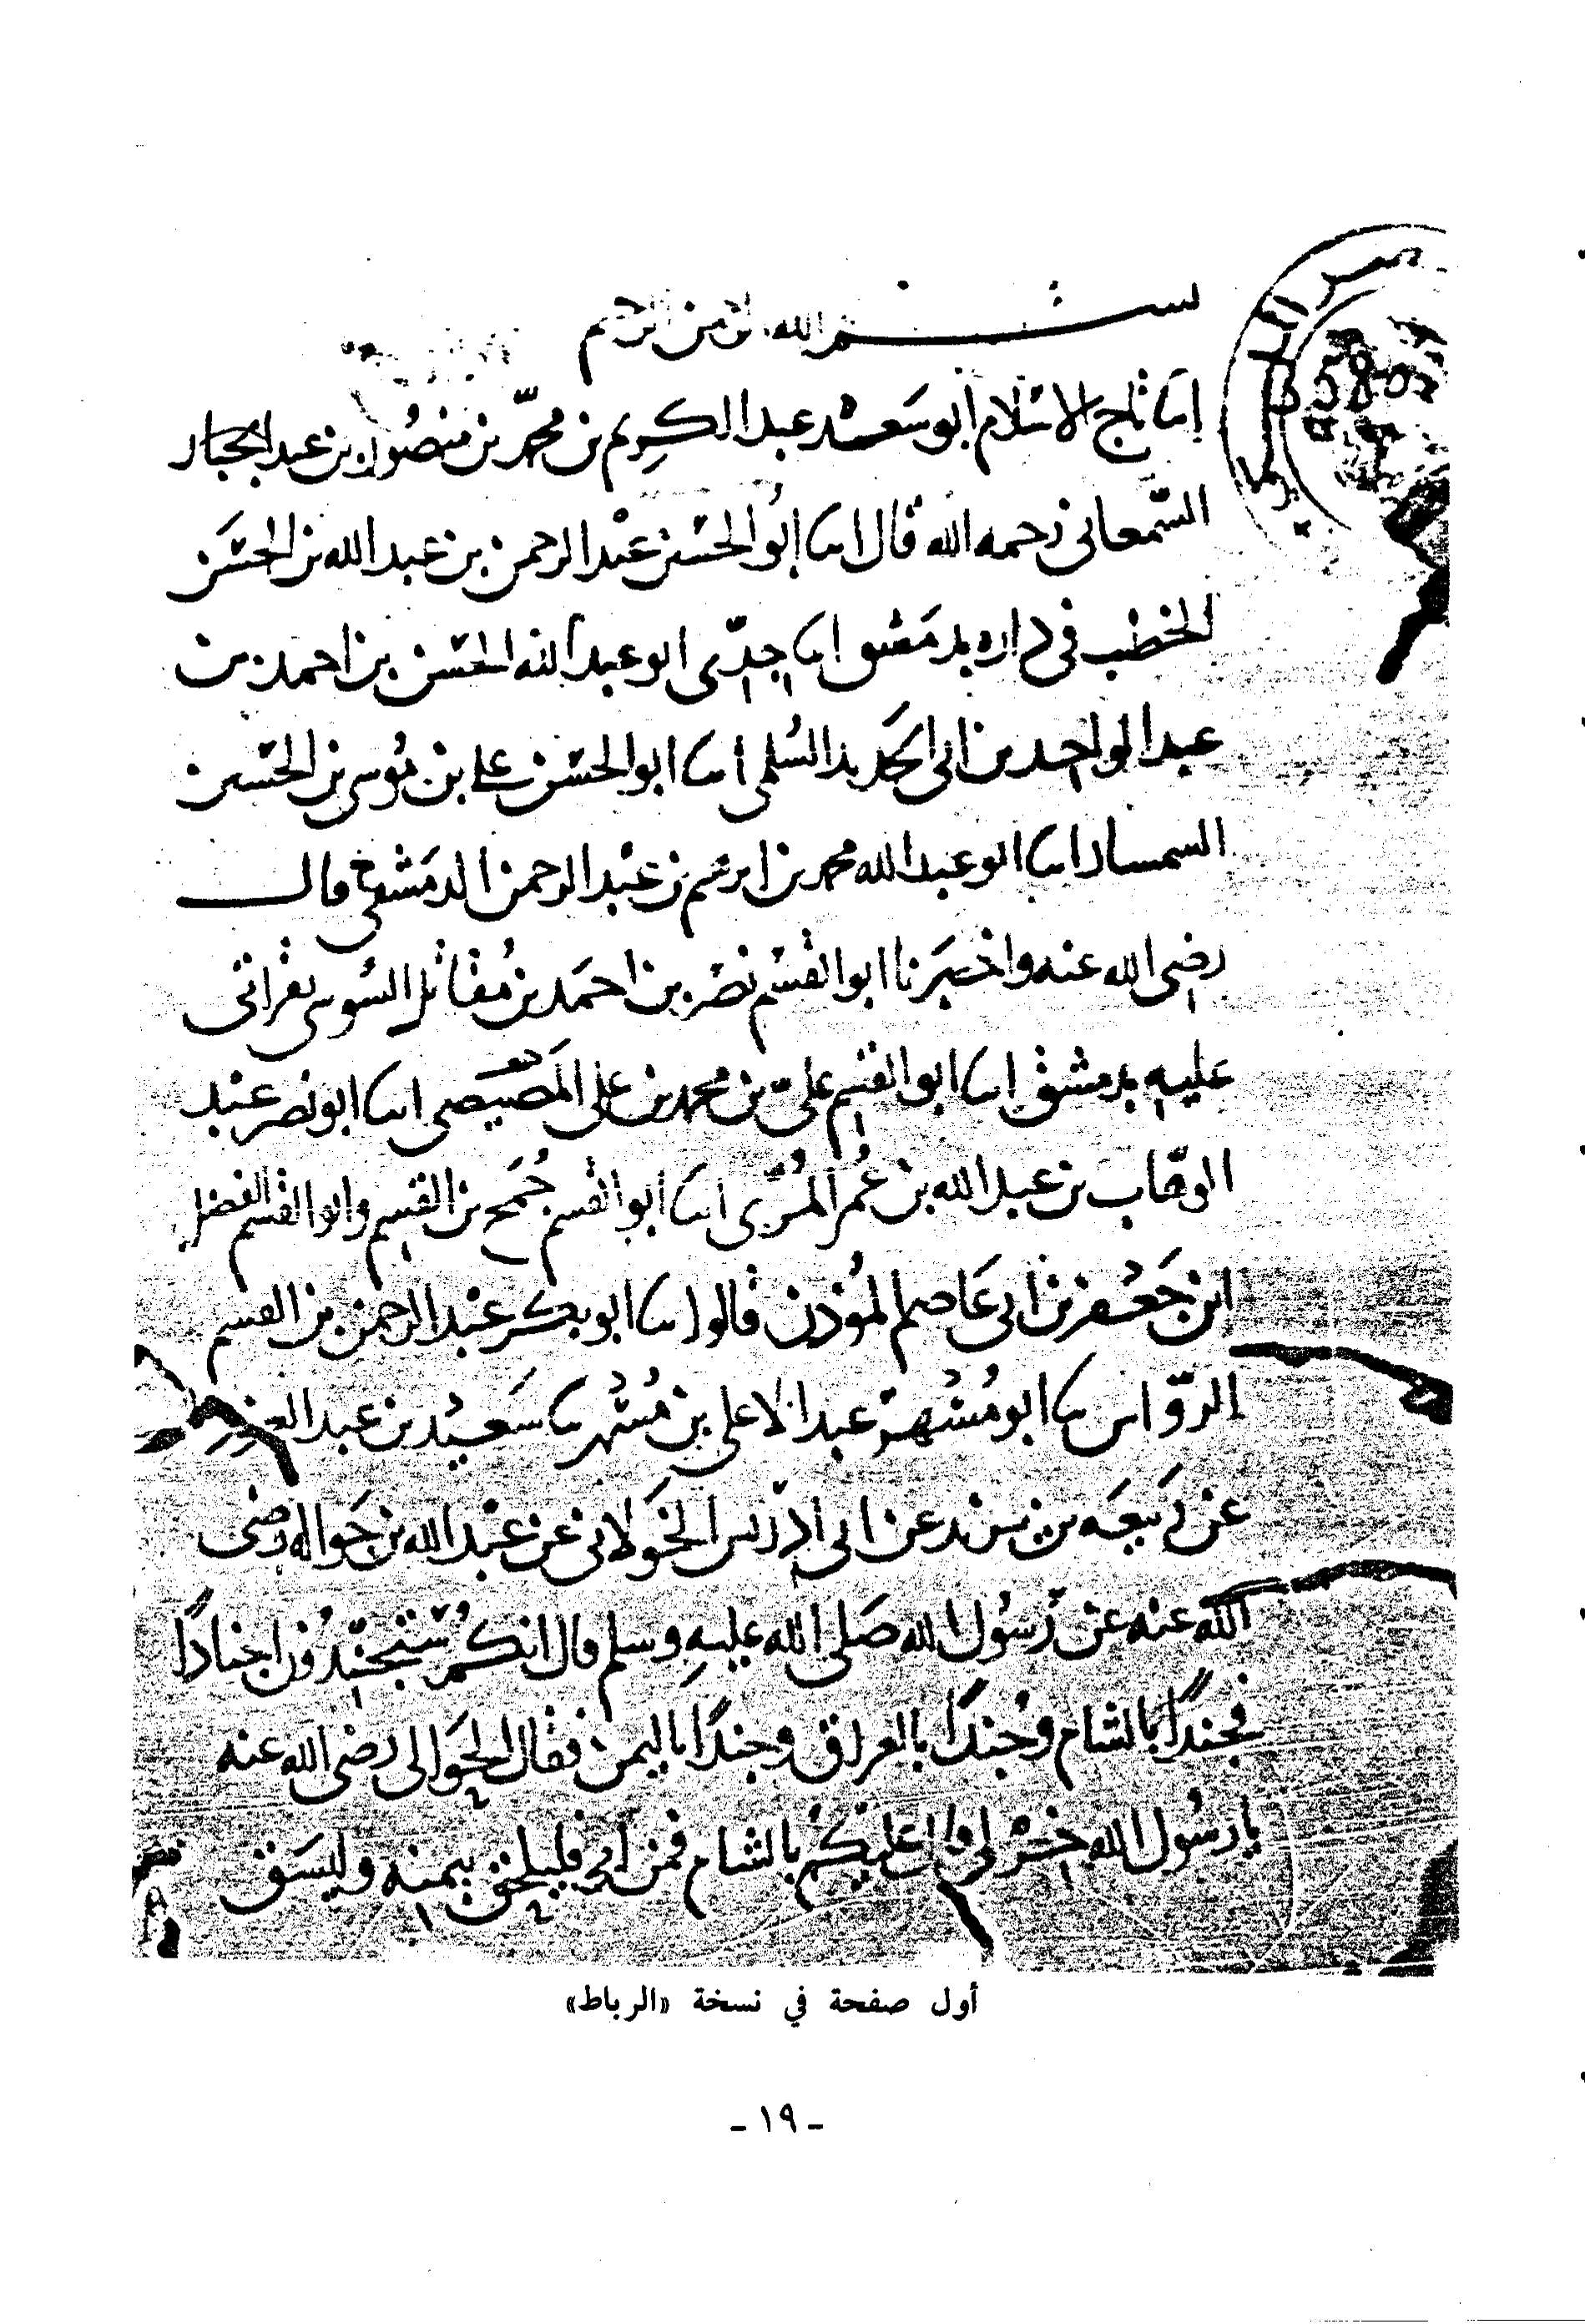 بسم الله الرحمن الرحيم
انبا تاج الاسلام ابو سعد عبد الكريم بن محمد بن منصور بن عبد الجبار
السمعاني رحمه الله قال انبا ابو الحسن عبد الرحمن بن عبد الله بن الحسن
الخطيب في داره بدمشق انبا جدي ابو عبد الله الحسن بن احمد بن
عبد الواحد بن ابي الحديد السلمي انبا ابو الحسن علي بن موسى بن الحسين
السمسار انبا ابو عبد الله محمد بن ابرهيم بن عبد الرحمن الدمشقي ح قال
رضي الله عنه واخبرنا ابو القسم نصر بن احمد بن مقاتل السوسي بقراتي
عليه بدمشق انبا ابو القسم علي بن محمد بن علي المصيصي انبا ابو نصر عبد
الوهاب بن عبد الله بن عمر المري انبا ابو القسم جمح بن القسم وابو القسم الفضل
ابن جعفر بن ابي عاصم المؤذن قالوا نبا ابو بكر عبد الرحمن بن القسم
الرواس نبا ابو مسهر عبد الاعلى بن مسهر نبا سعيد بن عبد العزيز
عن ربيعه بن يزيد عن ابي ادريس الخولاني عن عبد الله بن حواله رضي
الله عنه عن رسول الله صلى الله عليه وسلم قال انكم ستجندون اجنادًا
فجندًا بالشام وجندًا بالعراق وجندًا باليمن فقال الحوالي رضي الله عنه
يا رسول الله خر لي قال عليكم بالشام فمن ابى فليلحق بيمنه وليسق
35802
أول صفحة في نسخة «الرباط»
- ١٩ -